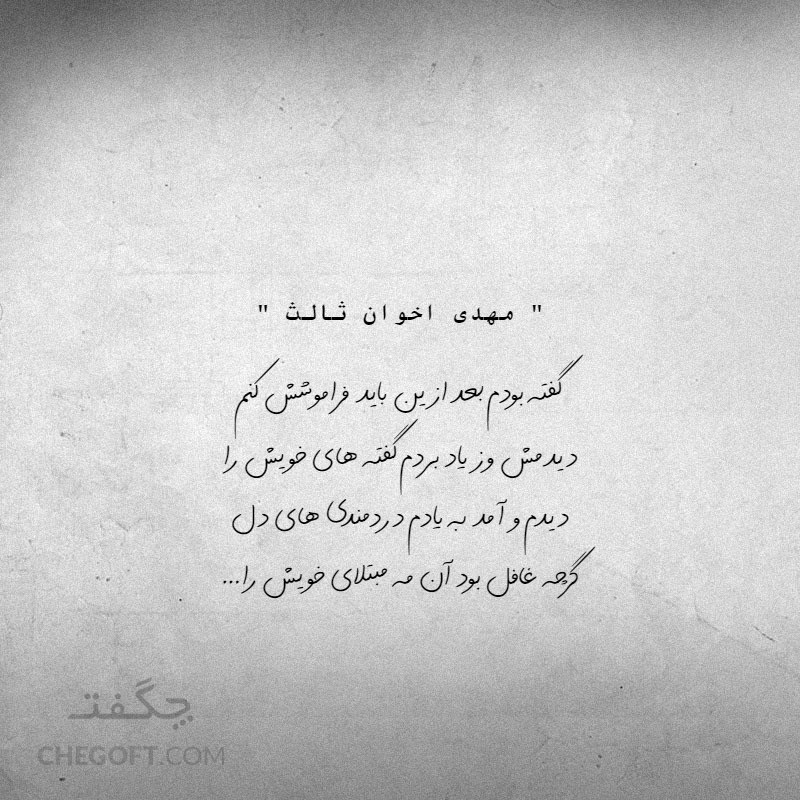 " مهدی اخوان ثالث "
گفته بودم بعد ازین باید فراموشش کنم
دیدمش وز یاد بردم گفته های خویش را
دیدم و آمد به یادم دردمندی های دل
گرچه غافل بود آن مه مبتلای خویش را...
چگفت
CHEGOFT.COM